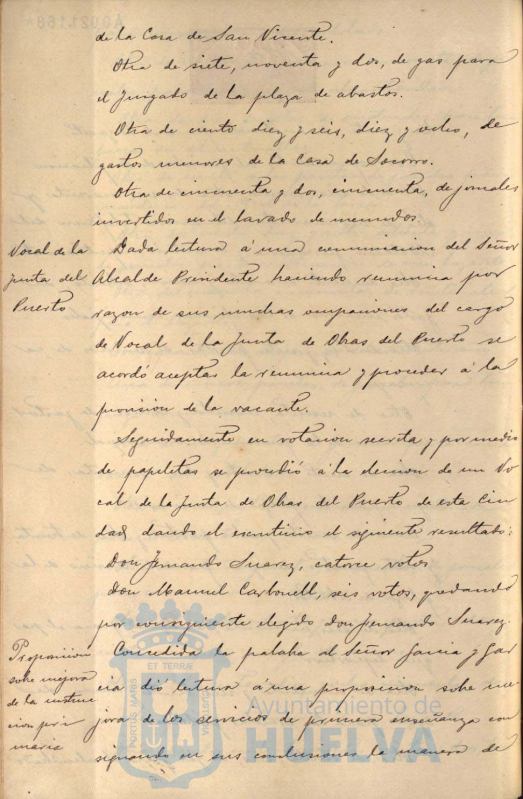 A0021.168*
de la Casa de San Vicente.
Otra de siete, noventa y dos, de gas para
el Juzgado de la plaza de abastos.
Otra de ciento diez y seis, diez y ocho, de
gastos menores de la Casa de Socorro.
Otra de cincuenta y dos, cincuenta, de jornales
invertidos en el lavado de menudos.
Vocal de la
Junta del
Puerto
Dada lectura á una comunicacion del Señor
Alcalde Presidente haciendo renuncia por
razon de sus muchas ocupaciones del cargo
de Vocal de la Junta de Obras del Puerto se
acordó aceptar la renuncia y proceder á la
provision de la vacante.
Seguidamente en votacion secreta y por medio
de papeletas se procedió á la eleccion de un Vo
cal de la Junta de Obras del Puerto de esta Ciu
dad, dando el escrutinio el siguiente resultado:
Don Fernando Suarez, catorce votos
Don Manuel Carbonell, seis votos, quedando
por consiguiente elegido Don Fernando Suarez.
Proposicion
sobre mejora
de la instruc
cion pri
maria
Concedida la palabra al Señor Garcia y Gar
cia dió lectura á una proposicion sobre me
jora de los servicios de primera enseñanza con
signando en sus conclusiones la manera de
PORTUS MARIS
ET TERRÆ
CUSTODIA
Ayuntamiento de
HUELVA